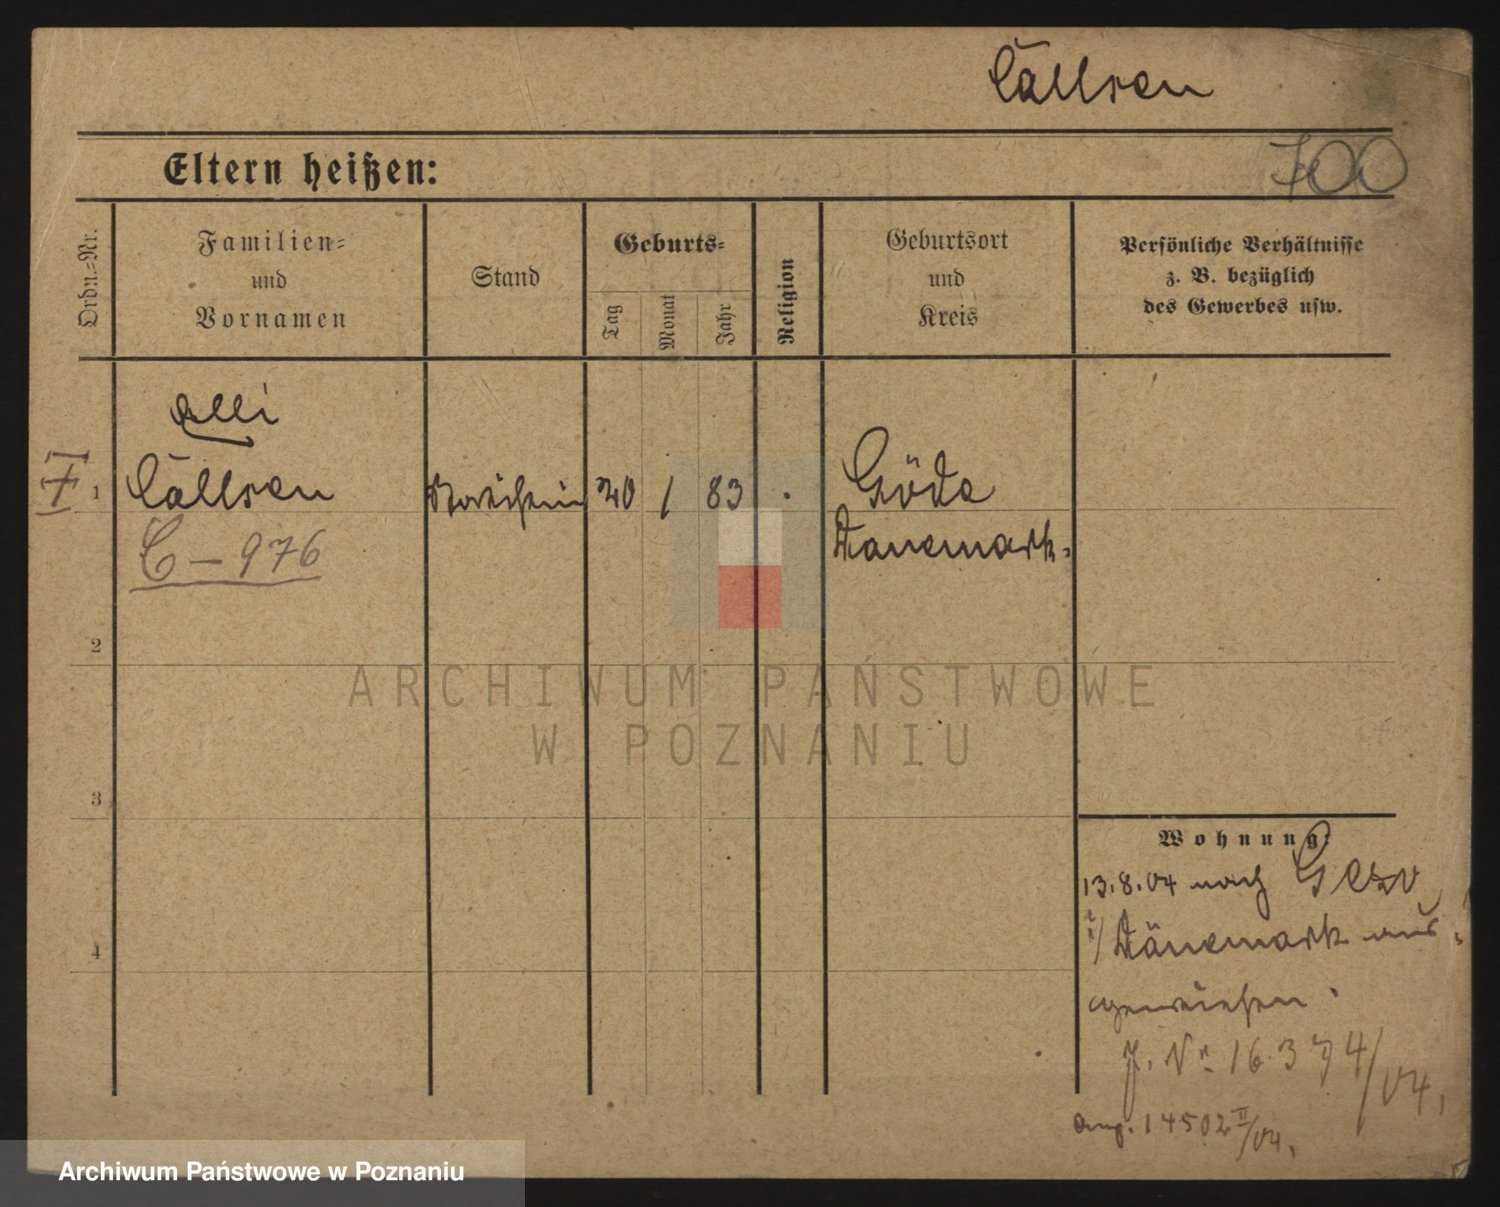 Cällsen
Eltern heißen:
700
Ordn.=Nr.
Familien=
und
Vornamen
Stand
Geburts=
Tag
Monat
Jahr
Religion
Geburtsort
und
Kreis
Persönliche Verhältnisse
z. B. bezüglich
des Gewerbes usw.
Elli
1
Cällsen
20
1
83
Göda
Dänemark.
C – 976
2
3
4
Wohnung:
13.8.04 nach
i/ Dänemark aus=
gewiesen.
J. Nr. 16374/04.
ang. 14502 II/04.
ARCHIWUM PAŃSTWOWE
W POZNANIU
Archiwum Państwowe w Poznaniu